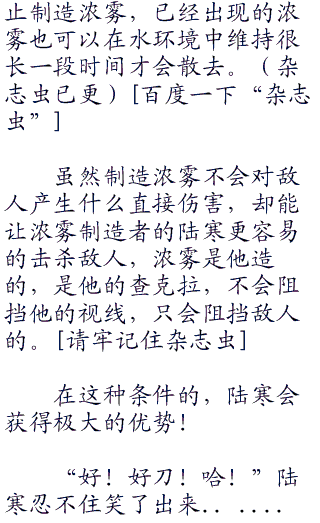 止制造浓雾，已经出现的浓
雾也可以在水环境中维持很
长一段时间才会散去。（杂
志虫已更）[百度一下“杂志
虫”]
虽然制造浓雾不会对敌
人产生什么直接伤害，却能
让浓雾制造者的陆寒更容易
的击杀敌人，浓雾是他造
的，是他的查克拉，不会阻
挡他的视线，只会阻挡敌人
的。[请牢记住杂志虫]
在这种条件的，陆寒会
获得极大的优势！
“好！好刀！哈！”陆
寒忍不住笑了出来．．．．．．